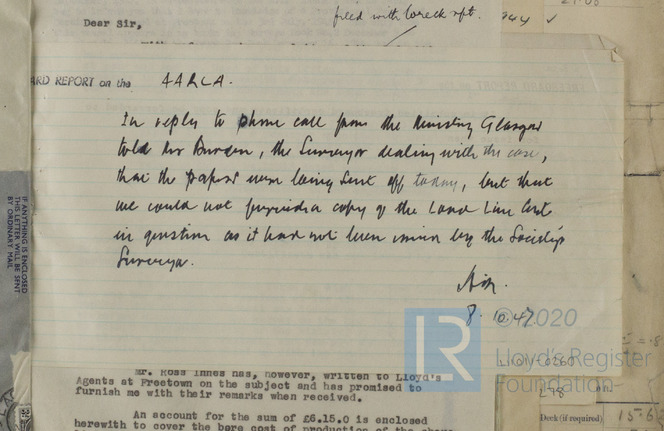 Dear Sir,
filed with Wreck rpt.
ARD REPORT on the AARLA.
In reply to phone call from the Ministry Glasgow
told Mr Burden, the Surveyor dealing with the case,
that the papers were being sent off today, but that
we could not furnish a copy of the Load Line Cert
in question as it had not been issued by the Society's
Surveyor.
8.10.47.
IF ANYTHING IS ENCLOSED
THIS LETTER WILL BE SENT
BY ORDINARY MAIL
©2020
Lloyd's Register
Foundation
LR
Mr. Ross Innes has, however, written to Lloyd's
Agents at Freetown on the subject and has promised to
furnish me with their remarks when received.
An account for the sum of £6.15.0 is enclosed
herewith to cover the bare cost of production of the above
Deck (if required)